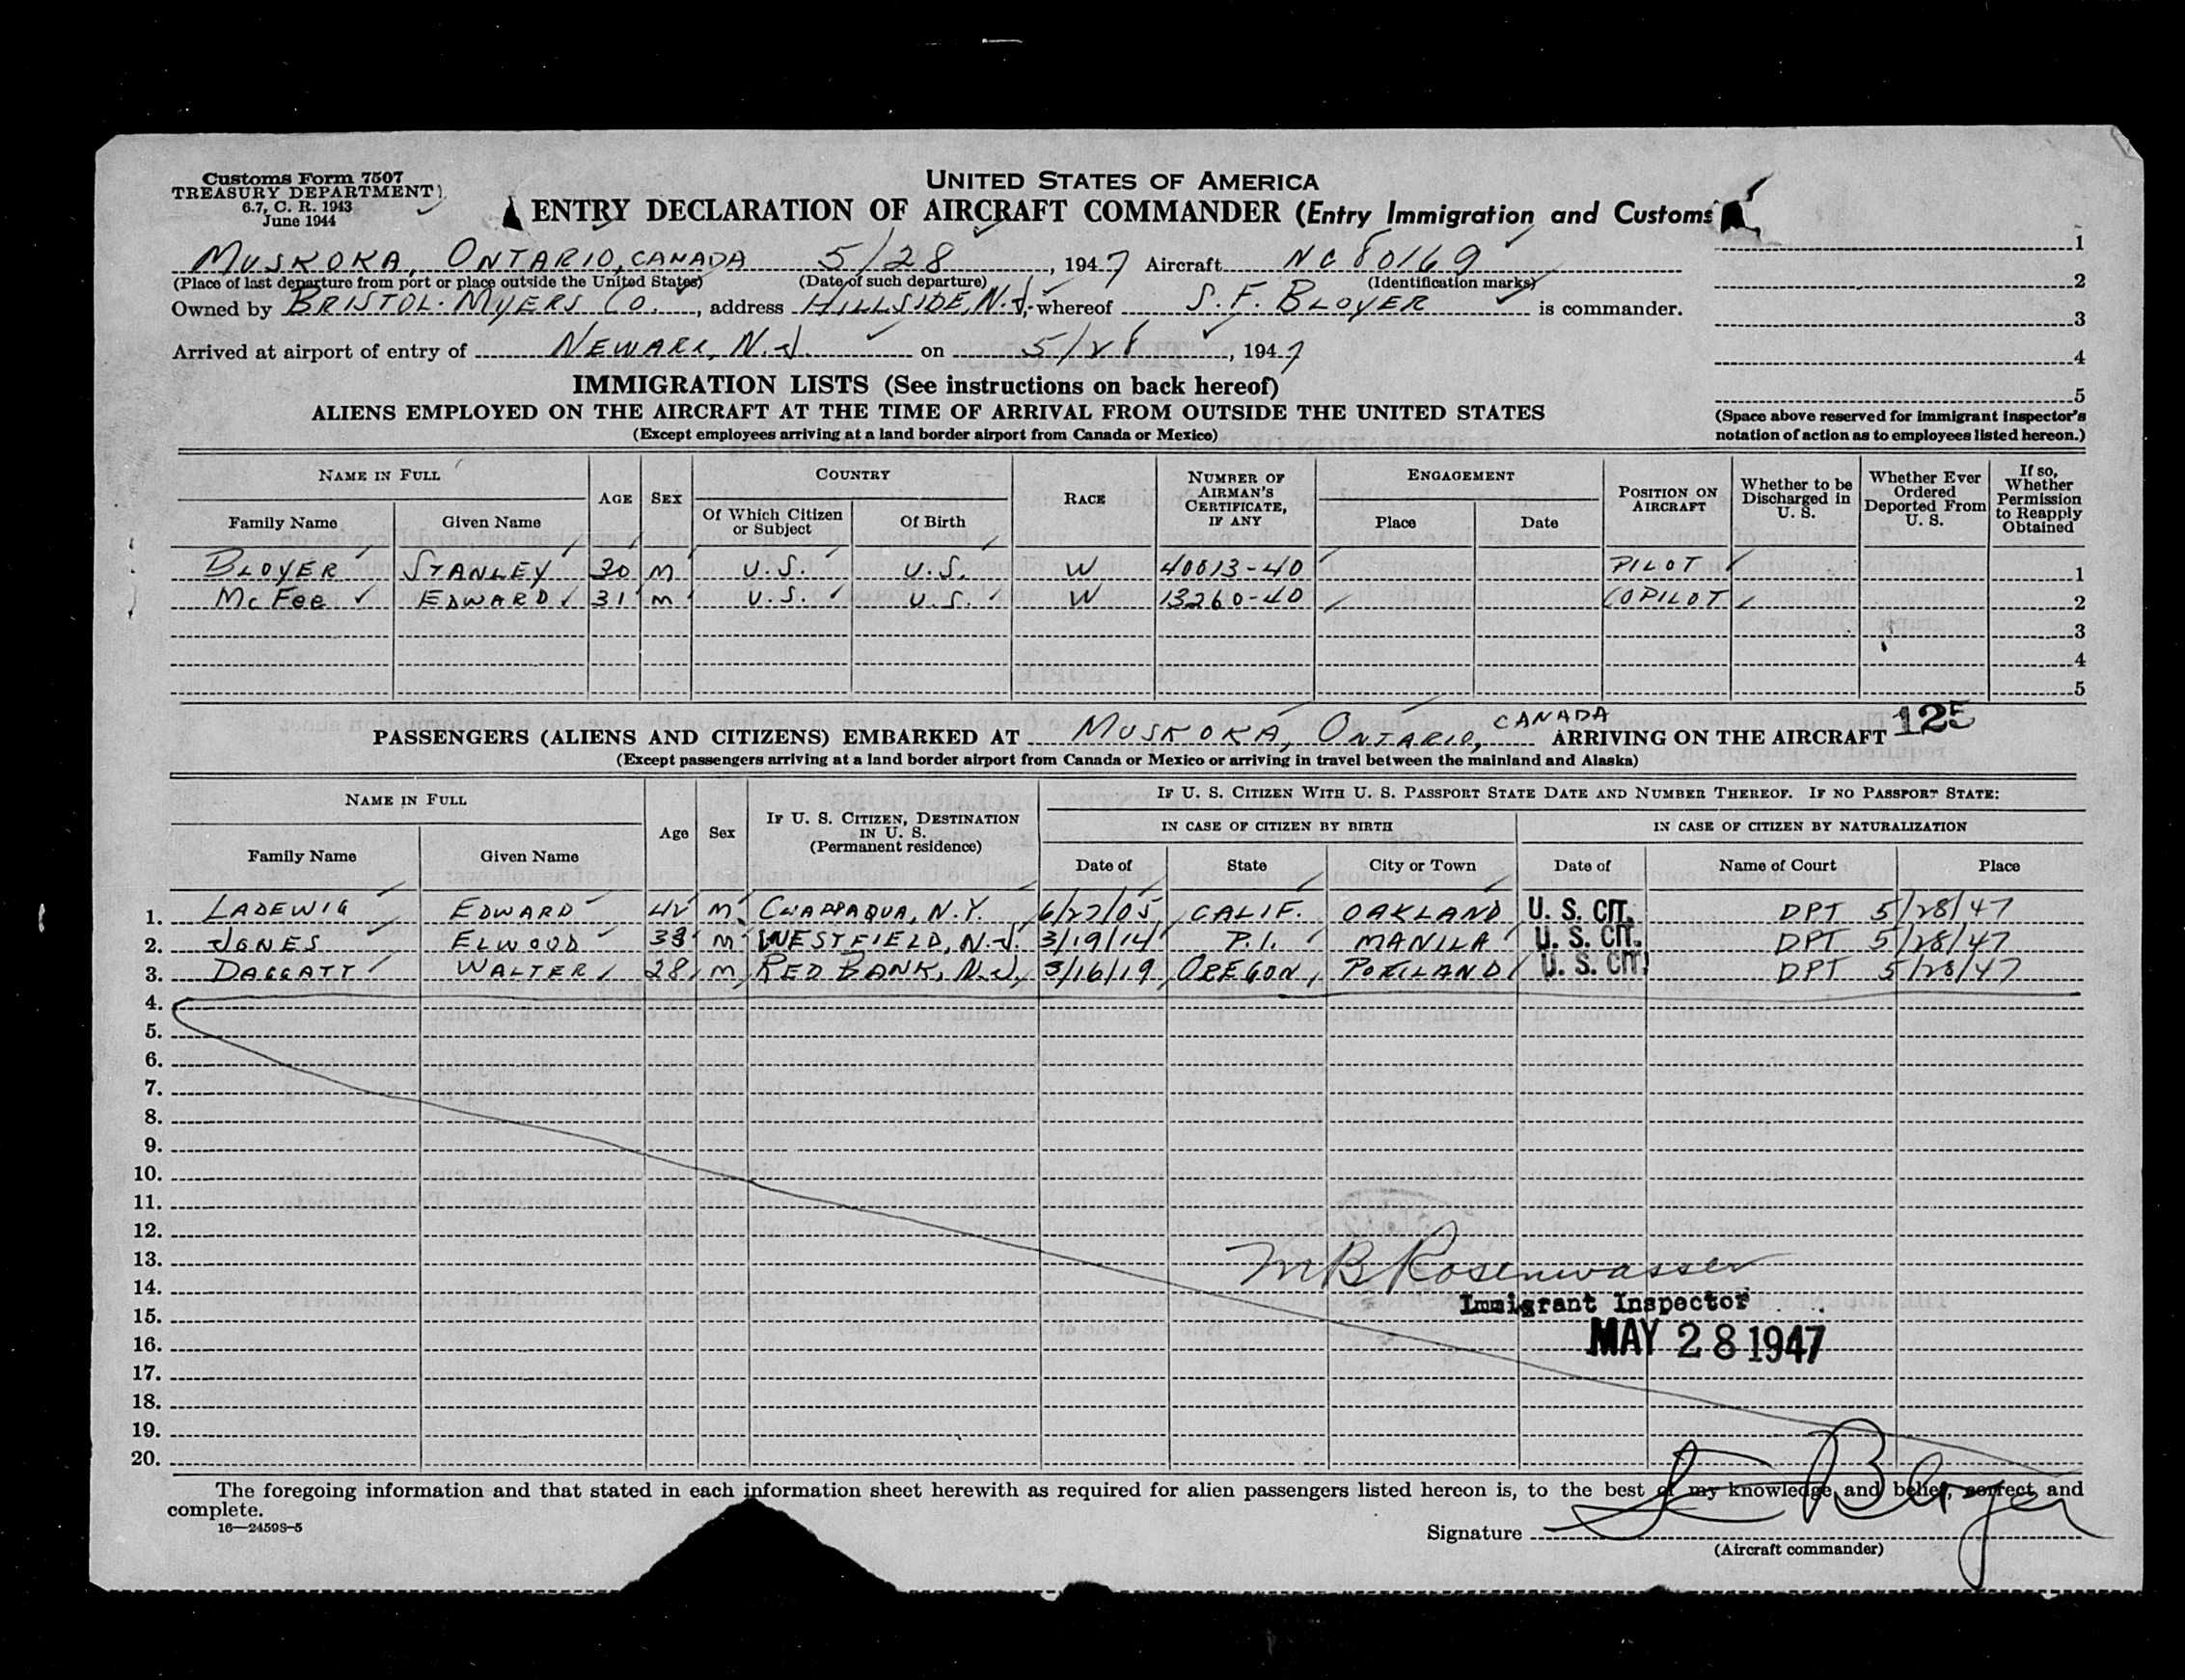 Customs Form 7507
TREASURY DEPARTMENT
6.7, C. R. 1943
June 1944
UNITED STATES OF AMERICA
ENTRY DECLARATION OF AIRCRAFT COMMANDER (Entry Immigration and Customs
MUSKOKA, ONTARIO, CANADA 5/28, 1947 Aircraft NC 80169
(Place of last departure from port or place outside the United States) (Date of such departure) (Identification marks)
Owned by BRISTOL-MYERS CO., address HILLSIDE, N.J. whereof S. F. BLOYER is commander.
Arrived at airport of entry of NEWARK, N.J. on 5/28, 1947
1
2
3
4
5
(Space above reserved for immigrant inspector's notation of action as to employees listed hereon.)
IMMIGRATION LISTS (See instructions on back hereof)
ALIENS EMPLOYED ON THE AIRCRAFT AT THE TIME OF ARRIVAL FROM OUTSIDE THE UNITED STATES
(Except employees arriving at a land border airport from Canada or Mexico)
NAME IN FULL AGE SEX COUNTRY RACE NUMBER OF AIRMAN'S CERTIFICATE, IF ANY ENGAGEMENT POSITION ON AIRCRAFT Whether to be Discharged in U. S. Whether Ever Ordered Deported From U. S. If so, Whether Permission to Reapply Obtained
Family Name Given Name Of Which Citizen or Subject Of Birth Place Date
BLOYER STANLEY 30 M U.S. U.S. W 40813-40 PILOT 1
McFee EDWARD 31 M U.S. U.S. W 13260-40 COPILOT 2
3
4
5
PASSENGERS (ALIENS AND CITIZENS) EMBARKED AT MUSKOKA, ONTARIO, CANADA ARRIVING ON THE AIRCRAFT 125
(Except passengers arriving at a land border airport from Canada or Mexico or arriving in travel between the mainland and Alaska)
NAME IN FULL Age Sex IF U. S. CITIZEN, DESTINATION IN U. S. (Permanent residence) IF U. S. CITIZEN WITH U. S. PASSPORT STATE DATE AND NUMBER THEREOF. IF NO PASSPORT STATE:
IN CASE OF CITIZEN BY BIRTH IN CASE OF CITIZEN BY NATURALIZATION
Family Name Given Name Date of State City or Town Date of Name of Court Place
1. LADEWIG EDWARD 42 M CHAPPAQUA, N.Y. 6/27/05 CALIF. OAKLAND U. S. CIT. DPT 5/28/47
2. JONES ELWOOD 33 M WESTFIELD, N.J. 3/19/14 P.I. MANILA U. S. CIT. DPT 5/28/47
3. DAGGATT WALTER 28 M RED BANK, N.J. 3/16/19 OREGON PORTLAND U. S. CIT. DPT 5/28/47
4.
5.
6.
7.
8.
9.
10.
11.
12.
13. M B Rosenwasser
14. Immigrant Inspector
15.
16. MAY 28 1947
17.
18.
19.
20.
The foregoing information and that stated in each information sheet herewith as required for alien passengers listed hereon is, to the best of my knowledge and belief, correct and
complete.
16—24598-5
Signature
(Aircraft commander)